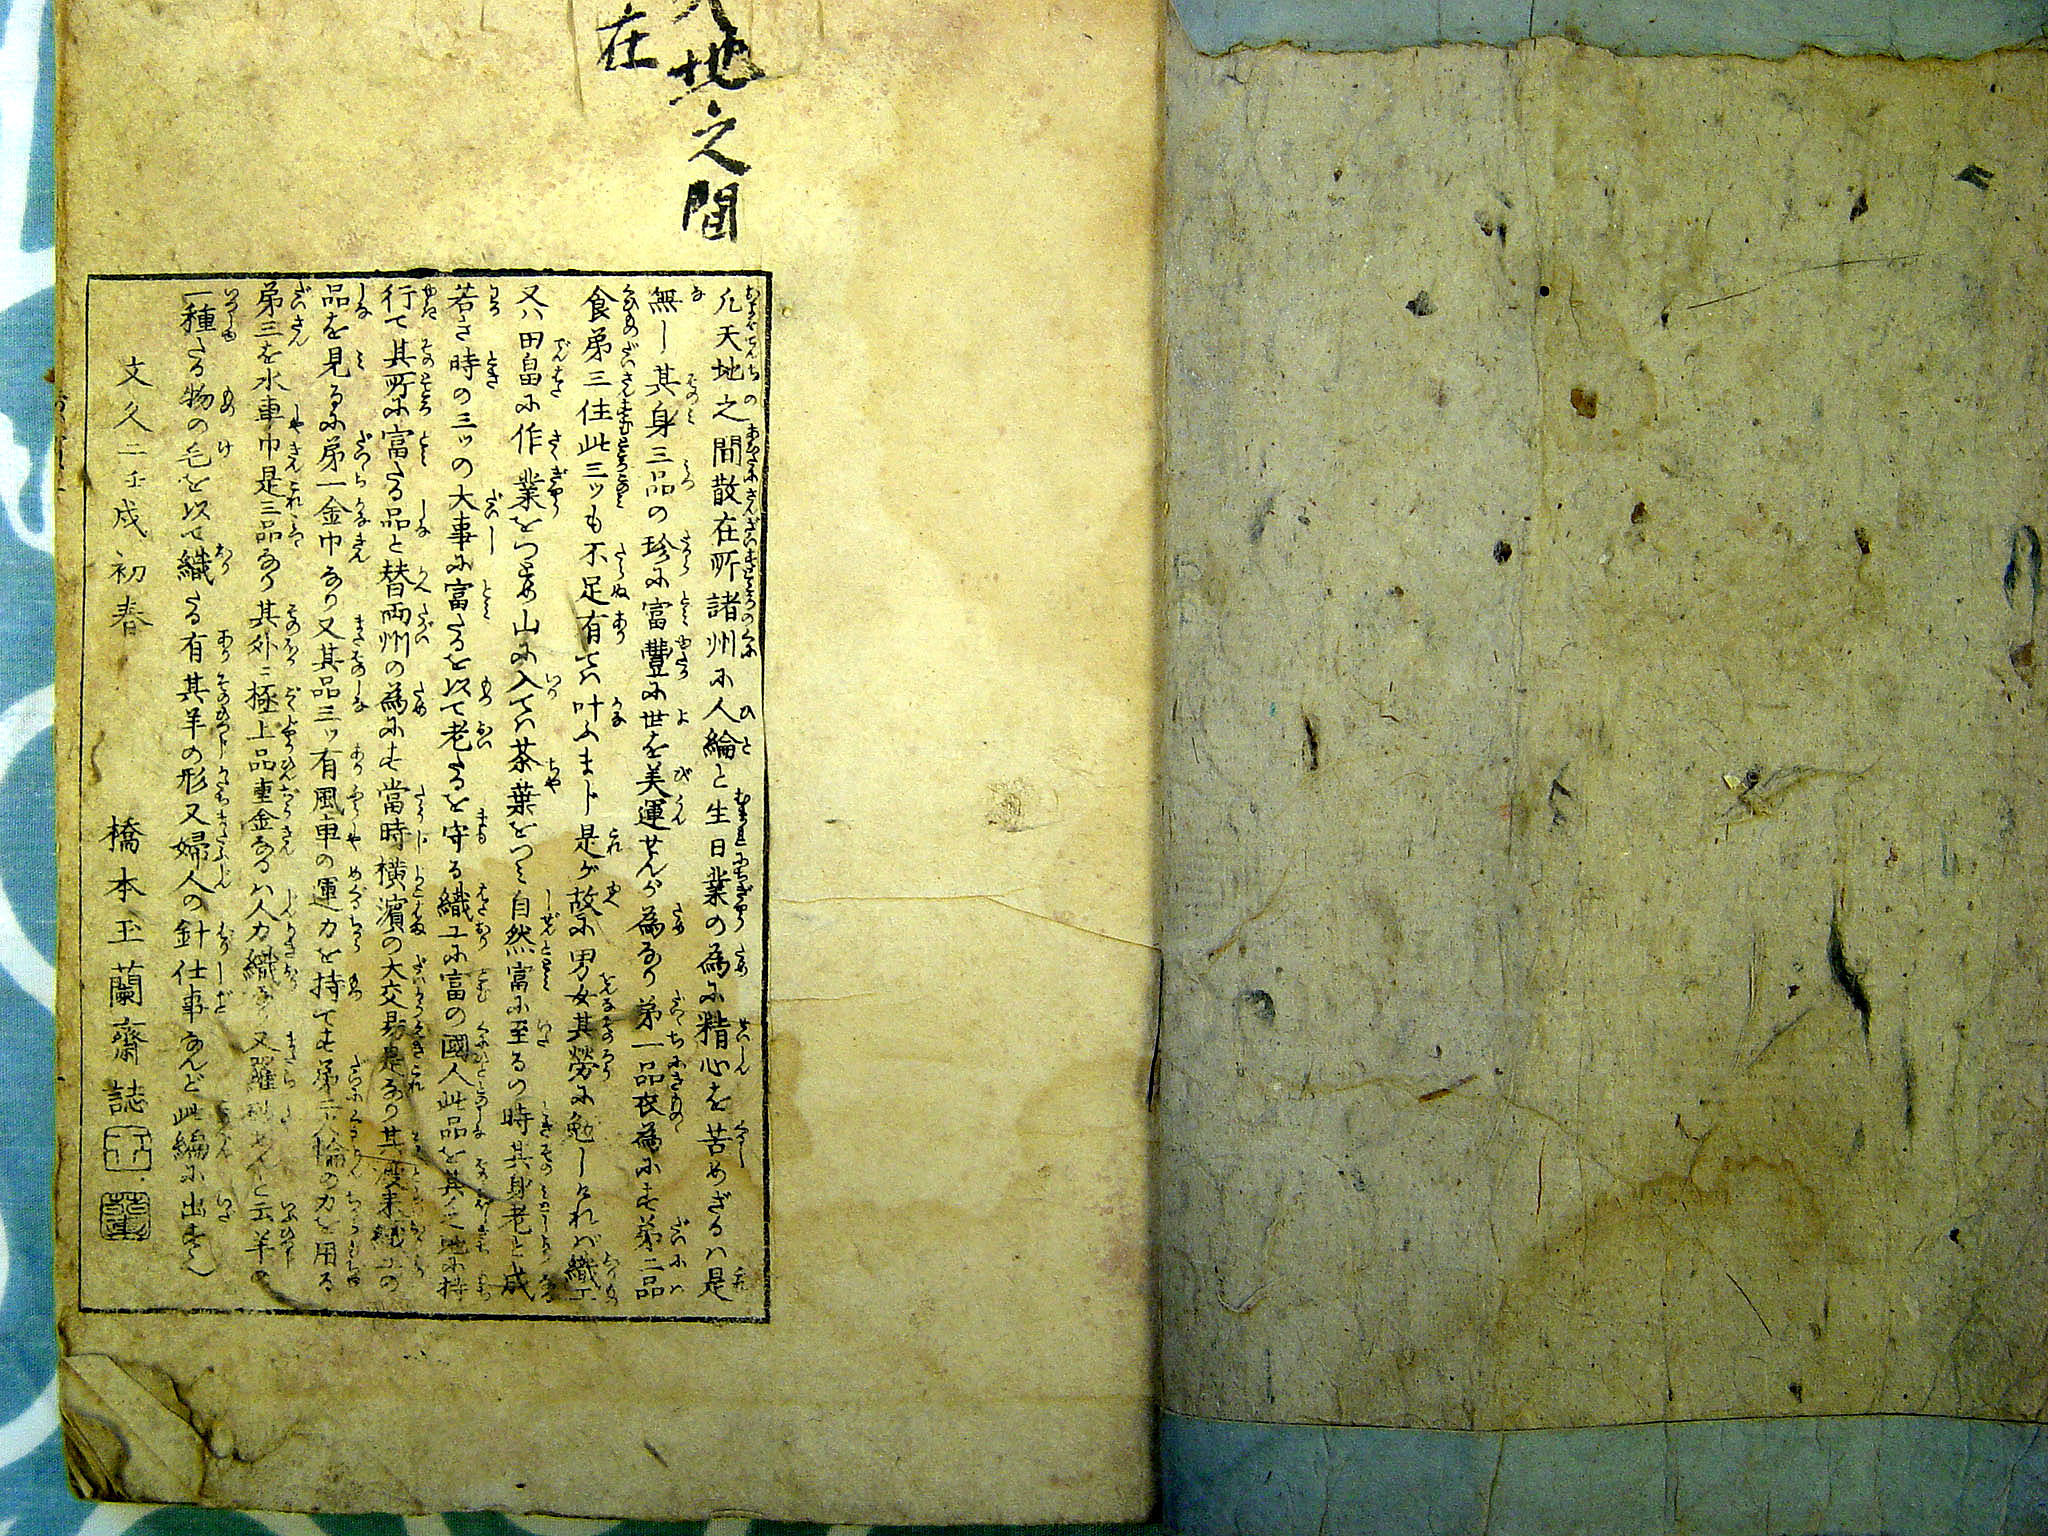 地之間
在
凡天地之間散在所諸州に人綸と生日業の為に精心を苦めざるハ是
無し其身三品の珍に富豊に世を美運せんが為なり第一品衣為にす第二品
食第三住此三ッも不足有てハ叶ふまじ是が故に男女其労に勉しけれバ織工
又ハ田畠に作業をつとめ山に入てハ茶葉をつミ自然富に至るの時其身老と成
若き時の三ッの大事に富たるを以て老たるを守る織工に富の國人此品を其之地に持
行て其所に富たる品と替両州の為にす當時横濱の大交易是なり其渡来織工の
品を見るに第一金巾なり又其品三ッ有風車の運力を持てす第二人
の力を用る
第三を水車巾是三品なり其外ニ極上品重金なるハ人力織なり又羅
と云羊の
一種たる物の毛を以て織たる有其羊の形又婦人の針仕事なんど此編に出すべし
文久二壬戌初春
橋本玉蘭齋誌